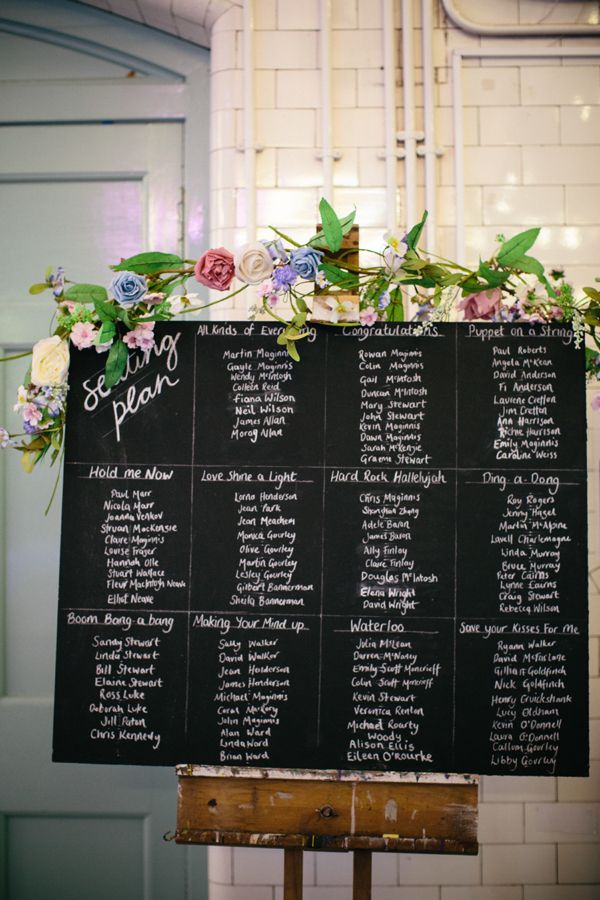 seating
plan
All Kinds of Everything
Martin Maginnis
Gayle Maginnis
Wendy McIntosh
Colleen Reid
Fiona Wilson
Neil Wilson
James Allan
Morag Allan
Congratulations
Rowan Maginnis
Colin Maginnis
Gail McIntosh
Duncan McIntosh
Mary Stewart
John Stewart
Kevin Maginnis
Dawn Maginnis
Sarah McKenzie
Graeme Stewart
Puppet on a String
Paul Roberts
Angela McKean
David Anderson
Fi Anderson
Laurene Cretton
Jim Cretton
Ann Harrison
Richie Harrison
Emily Maginnis
Caroline Weiss
Hold me Now
Paul Marr
Nicola Marr
Joanna Venkov
Struan MacKenzie
Claire Maginnis
Louise Frager
Hannah Olle
Stuart Wallace
Fleur MacIntosh Neave
Elliot Neave
Love Shine a Light
Lorna Henderson
Jean Park
Jean Meachem
Monica Gourley
Olive Gourley
Martin Gourley
Lesley Gourley
Gilbert Bannerman
Sheila Bannerman
Hard Rock Hallelujah
Chris Maginnis
Shanshan Zhang
Adele Baron
James Baron
Ally Finlay
Claire Finlay
Douglas McIntosh
Elena Wright
David Wright
Ding-a-Dong
Roy Rogers
Jenny Hazel
Martin McAlpine
Lavell Charlemagne
Linda Murray
Bruce Murray
Peter Cairns
Lynne Cairns
Craig Stewart
Rebecca Wilson
Boom Bang-a-bang
Sandy Stewart
Linda Stewart
Bill Stewart
Elaine Stewart
Ross Luke
Deborah Luke
Jill Paton
Chris Kennedy
Making Your Mind up
Sally Walker
David Walker
Jean Henderson
James Henderson
Michael Maginnis
Carol McKory
John Maginnis
Alan Ward
Linda Ward
Brian Ward
Waterloo
Julia McLean
Darren McNatey
Emily Scott Moncrieff
Colin Scott Moncrieff
Kevin Stewart
Veronica Renton
Michael Roarty
Woody
Alison Ellis
Eileen O'Rourke
Save your Kisses For Me
Ryann Walker
David McFarlane
Gillian Goldfinch
Nick Goldfinch
Henry Cruickshank
Lucy Oldham
Kevin O'Donnell
Laura O'Donnell
Callum Gourley
Libby Gourley